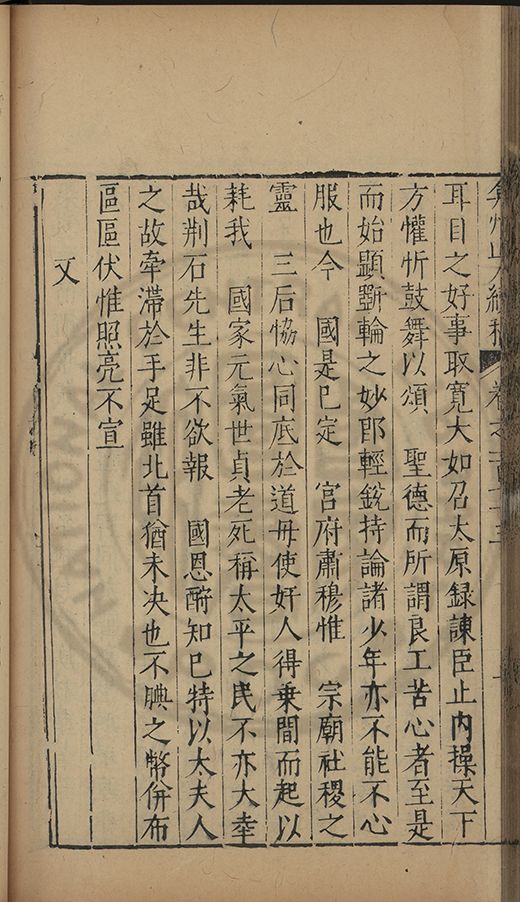 弇州山人續稿 卷之一百
耳目之好事取寬大如召太原録諫臣止内操天下
方懽忻鼓舞以頌 聖德而所謂良工苦心者至是
而始顯斵輪之妙郎輕銳持論諸少年亦不能不心
服也今 國是已定 宫府肅穆惟 宗廟社稷之
靈 三后恊心同底於道毋使奸人得乗間而起以
耗我 國家元氣世貞老死稱太平之民不亦大幸
哉荆石先生非不欲報 國恩酧知已特以太夫人
之故牽滯於手足雖北首猶未决也不腆之幣併布
區區伏惟照亮不宣
又